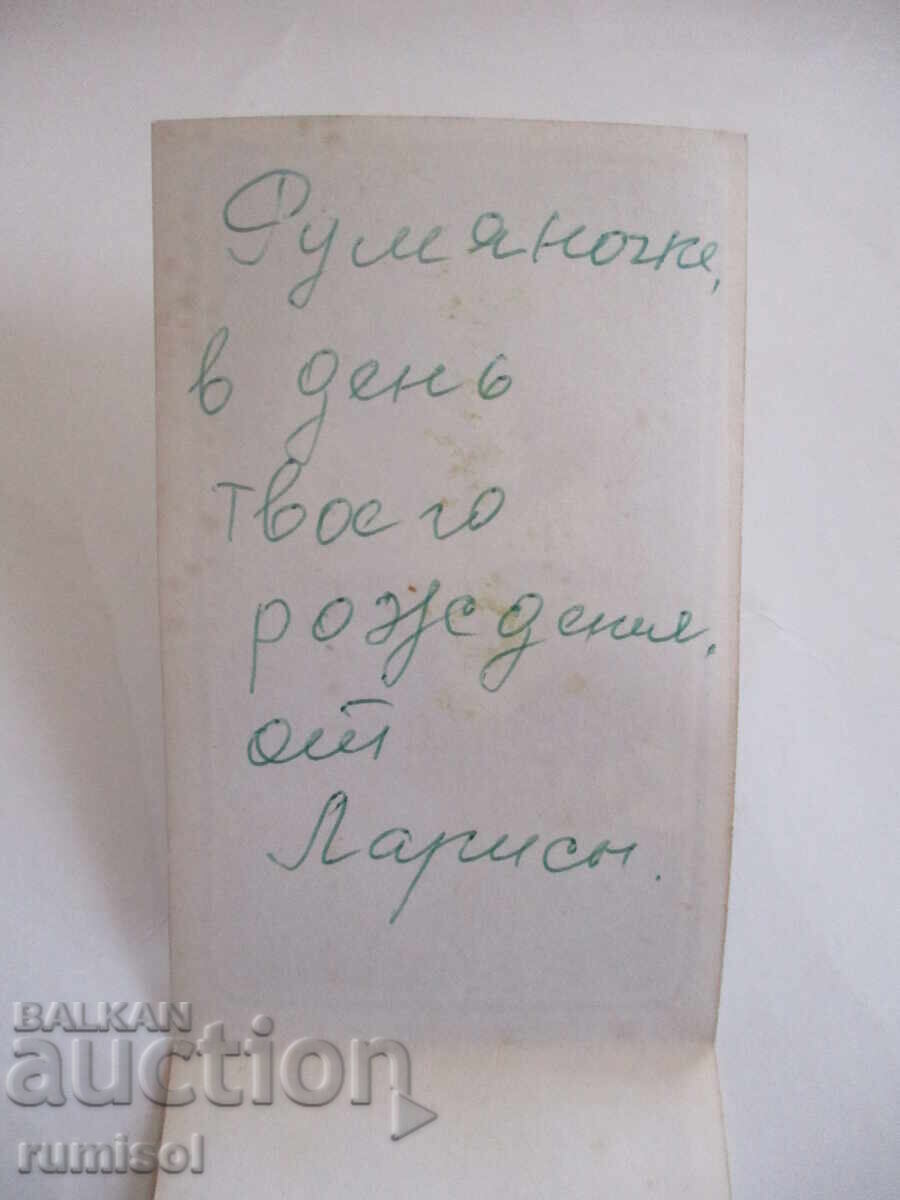 Румяночке,
в день
твоего
рождения.
от
Ларисы.
BALKAN
auction
rumisol